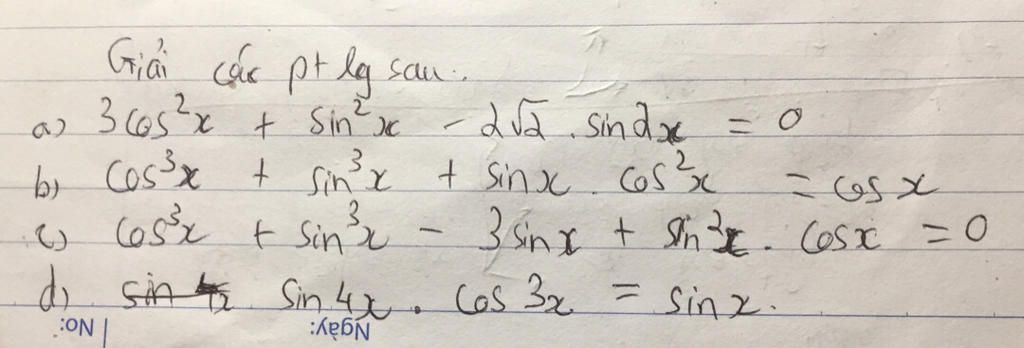 Giải các pt lg sau:
a) 3cos²x + sin²x - 2√2 . sin2x = 0
b) cos³x + sin³x + sinx . cos²x = cosx
c) cos³x + sin³x - 3sinx + sin²x . cosx = 0
d) sin 4x . cos 3x = sinx.
No: Ngày: